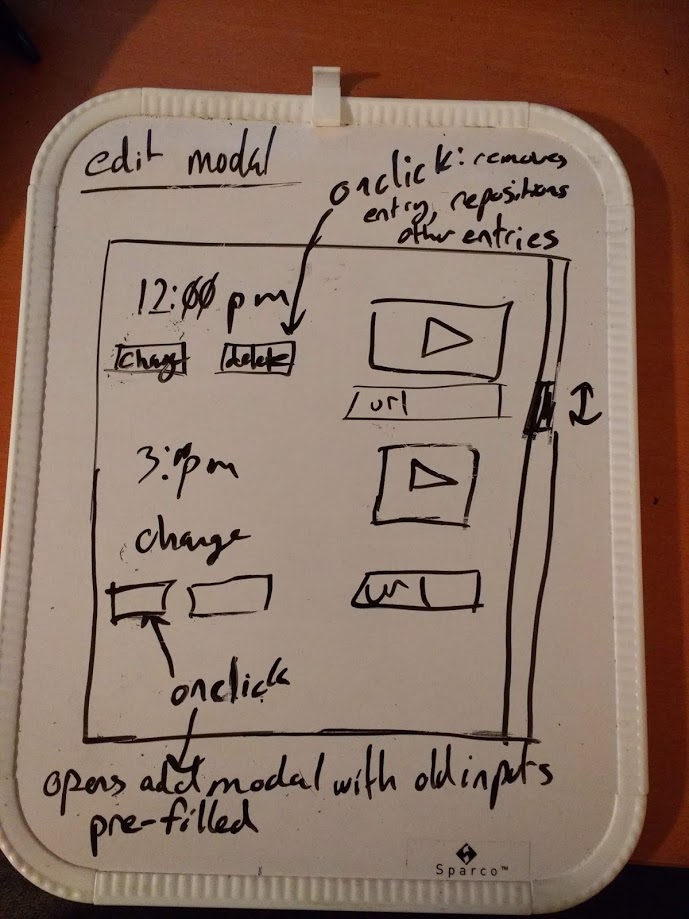 edit modal
onclick: removes
entry, repositions
other entries
12:00 pm
change delete
url
3: pm
change
url
onclick
opens add modal with old inputs
pre-filled
Sparco™